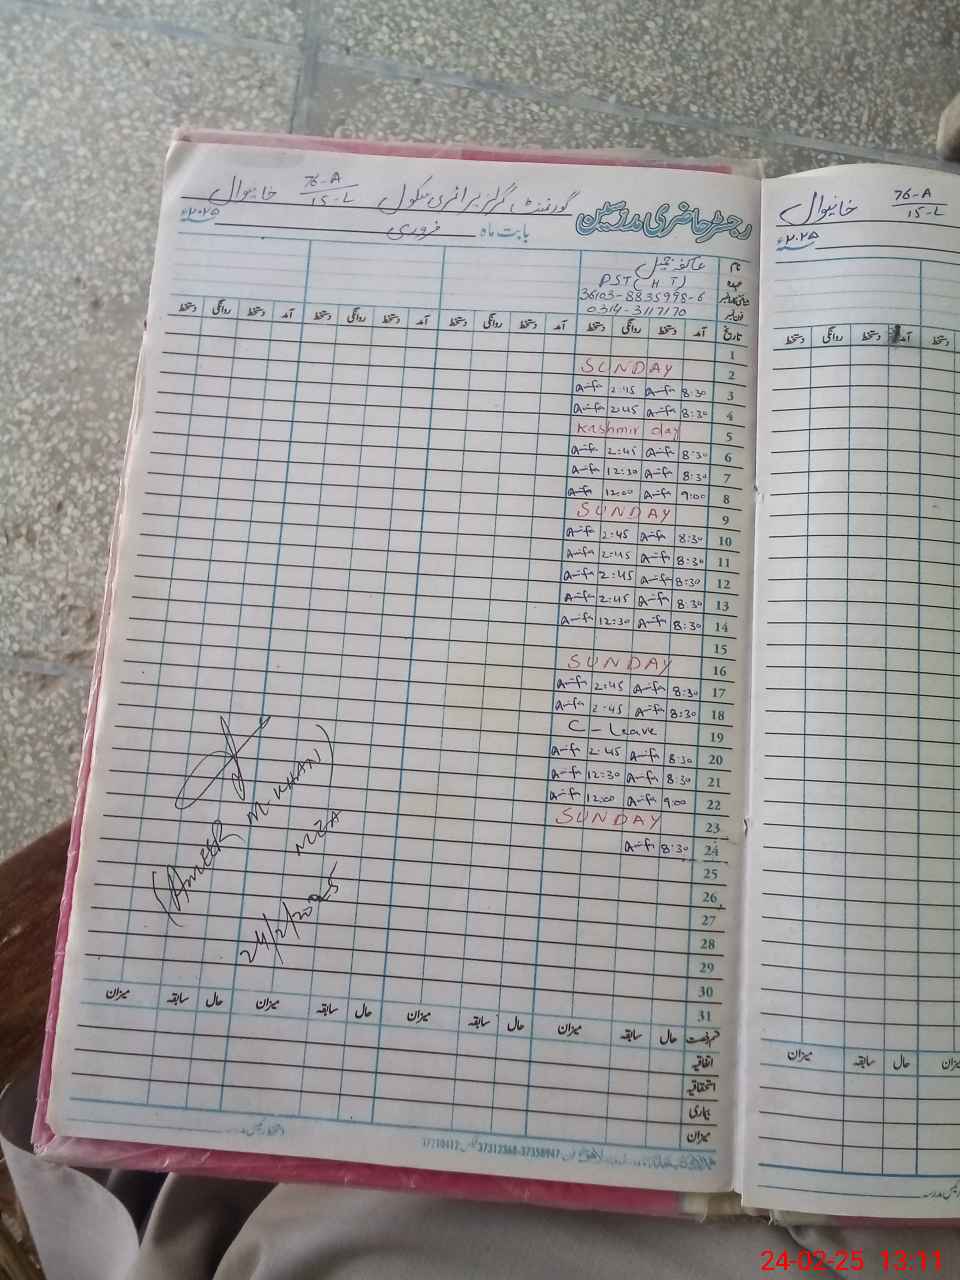 گورنمنٹ گرلز پرائمری سکول 76-A/15-L خانیوال
رجسٹر حاضری مدرسین
بابت ماہ فروری ۲۰۲۵ء
نام
عہدہ PST (HT)
36103-8835998-6
فون نمبر 0314-3117170
تاریخ آمد دستخط روانگی دستخط آمد دستخط روانگی دستخط آمد دستخط روانگی دستخط آمد دستخط روانگی دستخط
1
2 SUNDAY
3 8:30 2:45
4 8:30 2:45
5 Kashmir day
6 8:30 2:45
7 8:30 12:30
8 9:00 12:00
9 SUNDAY
10 8:30 2:45
11 8:30 2:45
12 8:30 2:45
13 8:30 2:45
14 8:30 12:30
15
16 SUNDAY
17 8:30 2:45
18 8:30 2:45
19 C-Leave
20 8:30 2:45
21 8:30 12:30
22 9:00 12:00
23 SUNDAY
24 8:30
25
26
27
28
29
30
31
(AMEER M KHAN)
MEA
24/2/2025
حال سابقہ میزان حال سابقہ میزان حال سابقہ میزان حال سابقہ میزان
اتفاقیہ
استحقاقیہ
بیماری
میزان
37312368-37358947
خانیوال 76-A/15-L
۲۰۲۵ء
دستخط آمد دستخط روانگی دستخط
حال سابقہ میزان
24-02-25 13:11